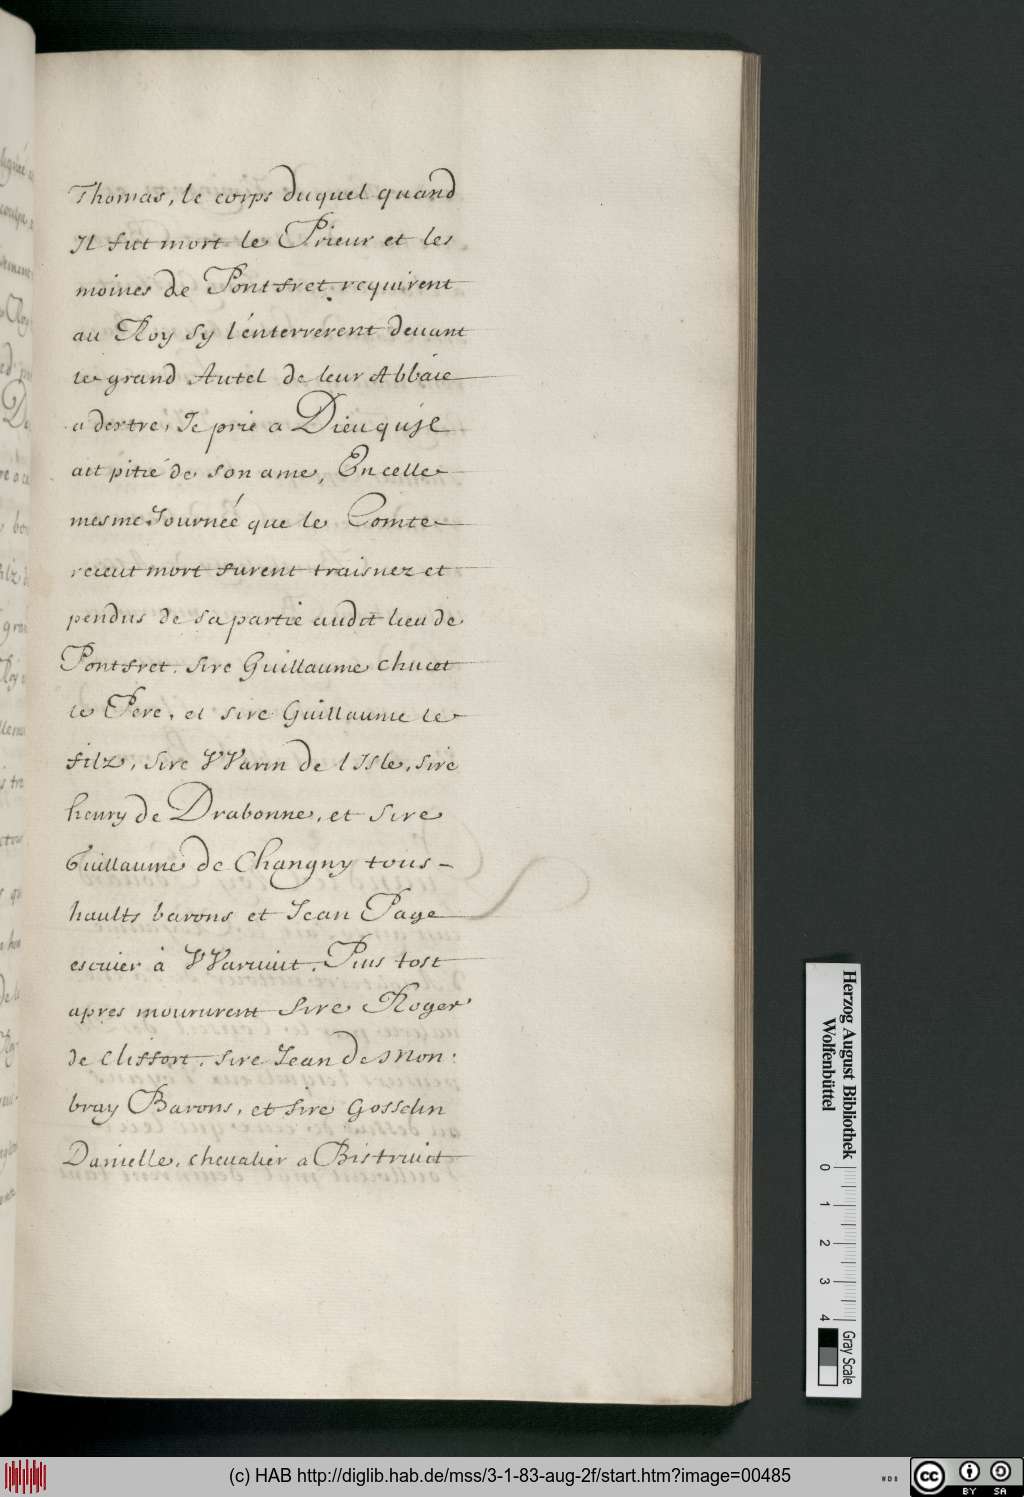 Thomas, le corps duquel quand
Il fut mort le Prieur et les
moines de Pontfret requirent
au Roy sy l'énterrerent deuant
le grand Autel de leur Abbaie
a dextre, Je prie a Dieu qu'jl
ait pitié de son ame, En celle
mesme Journeé que le Comte
receut mort furent traisnez et
pendus de sa partie audit lieu de
Pontfret. Sire Guillaume Chucet
le Pere, et sire Guillaume le
filz, Sire VVarin de l'Isle, sire
henry de Drabonne, et Sire
Guillaume de Changny tous-
haults barons et Jean Page
escuier à VVaruuit. Plus tost
apres moururent Sire Roger
de Cliffort, sire Jean de Mon:
bray Barons, et sire Gosselin
Danielle, chevalier a Bistruict
Herzog August Bibliothek
Wolfenbüttel
0 1 2 3 4
Gray Scale
(c) HAB http://diglib.hab.de/mss/3-1-83-aug-2f/start.htm?image=00485
cc BY SA